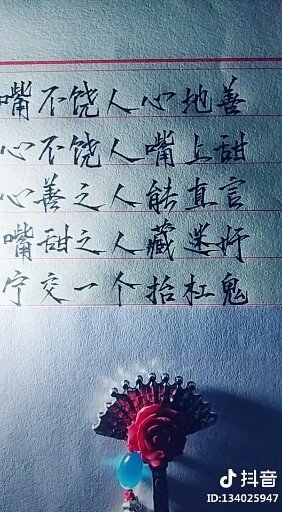 嘴不饶人心地善
心不饶人嘴上甜
心善之人能直言
嘴甜之人藏迷奸
宁交一个抬杠鬼
抖音
ID:134025947